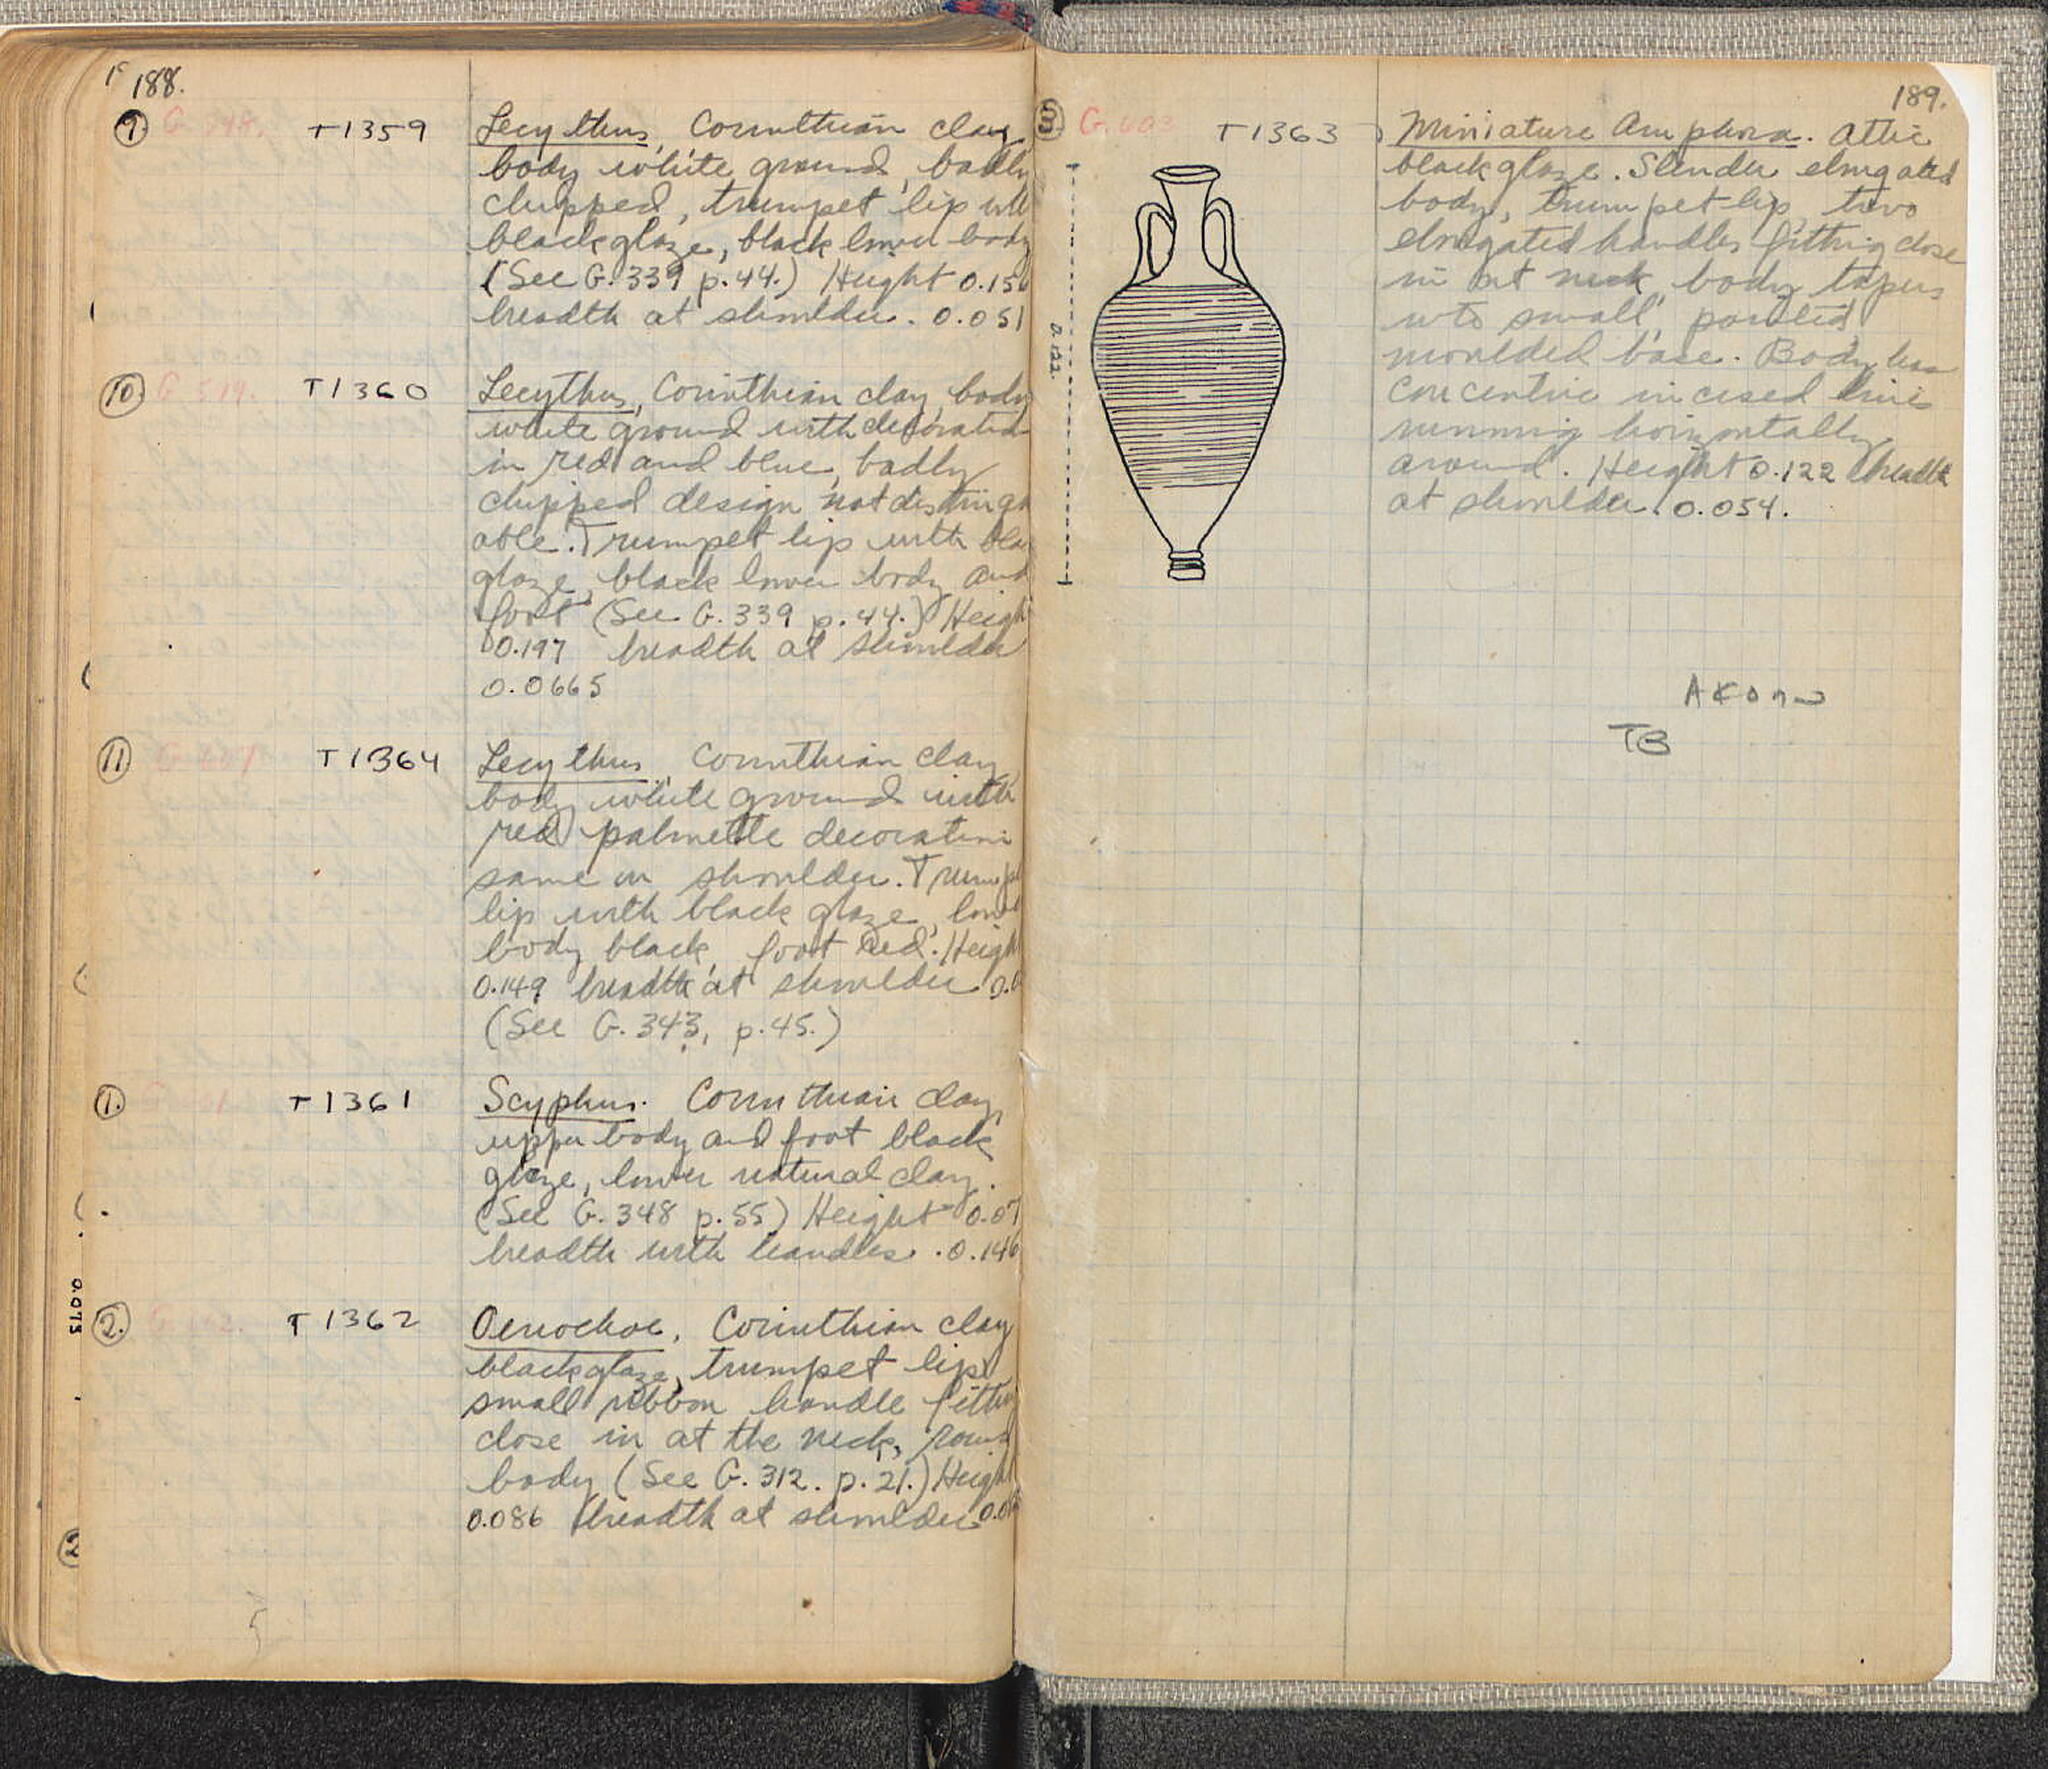 188.
9. T1359 Lecythus, Corinthian clay
body white ground, badly
chipped, trumpet lip with
black glaze, black lower body
(See G. 339 p. 44.) Height 0.156
breadth at shoulder. 0.051
10. G 599. T1360 Lecythus, Corinthian clay, body
white ground with decorated
in red and blue, badly
chipped design not disting
able. Trumpet lip with bla
glaze, black lower body and
foot (See G. 339 p. 44.) Heigh
0.197 breadth at shoulder
0.0665
11 T1364 Lecythus, Corinthian clay
body white ground with
red palmette decoration
same on shoulder. Trump
lip with black glaze, low
body black, foot red. Heigh
0.149 breadth at shoulder 0.
(See G. 343, p. 45.)
1. T1361 Scyphus. Corinthian clay,
upper body and foot black
glaze, lower natural clay.
(See G. 348 p. 55) Height 0.07
breadth with handles. 0.146
0.073
2. T1362 Oenochoe, Corinthian clay
black glaze, trumpet lip
small ribbon handle fitting
close in at the neck, round
body (See G. 312. p. 21.) Height
0.086 breadth at shoulder 0.0
2
189.
3. G. 603 T1363 Miniature Amphora. Attic
black glaze. Slender elongated
body, trumpet lip, two
elongated handles fitting close
in at neck, body tapers
into small, pointed
moulded base. Body has
concentric incised lines
running horizontally
around. Height 0.122 breadth
at shoulder. 0.054.
0.122.
TB